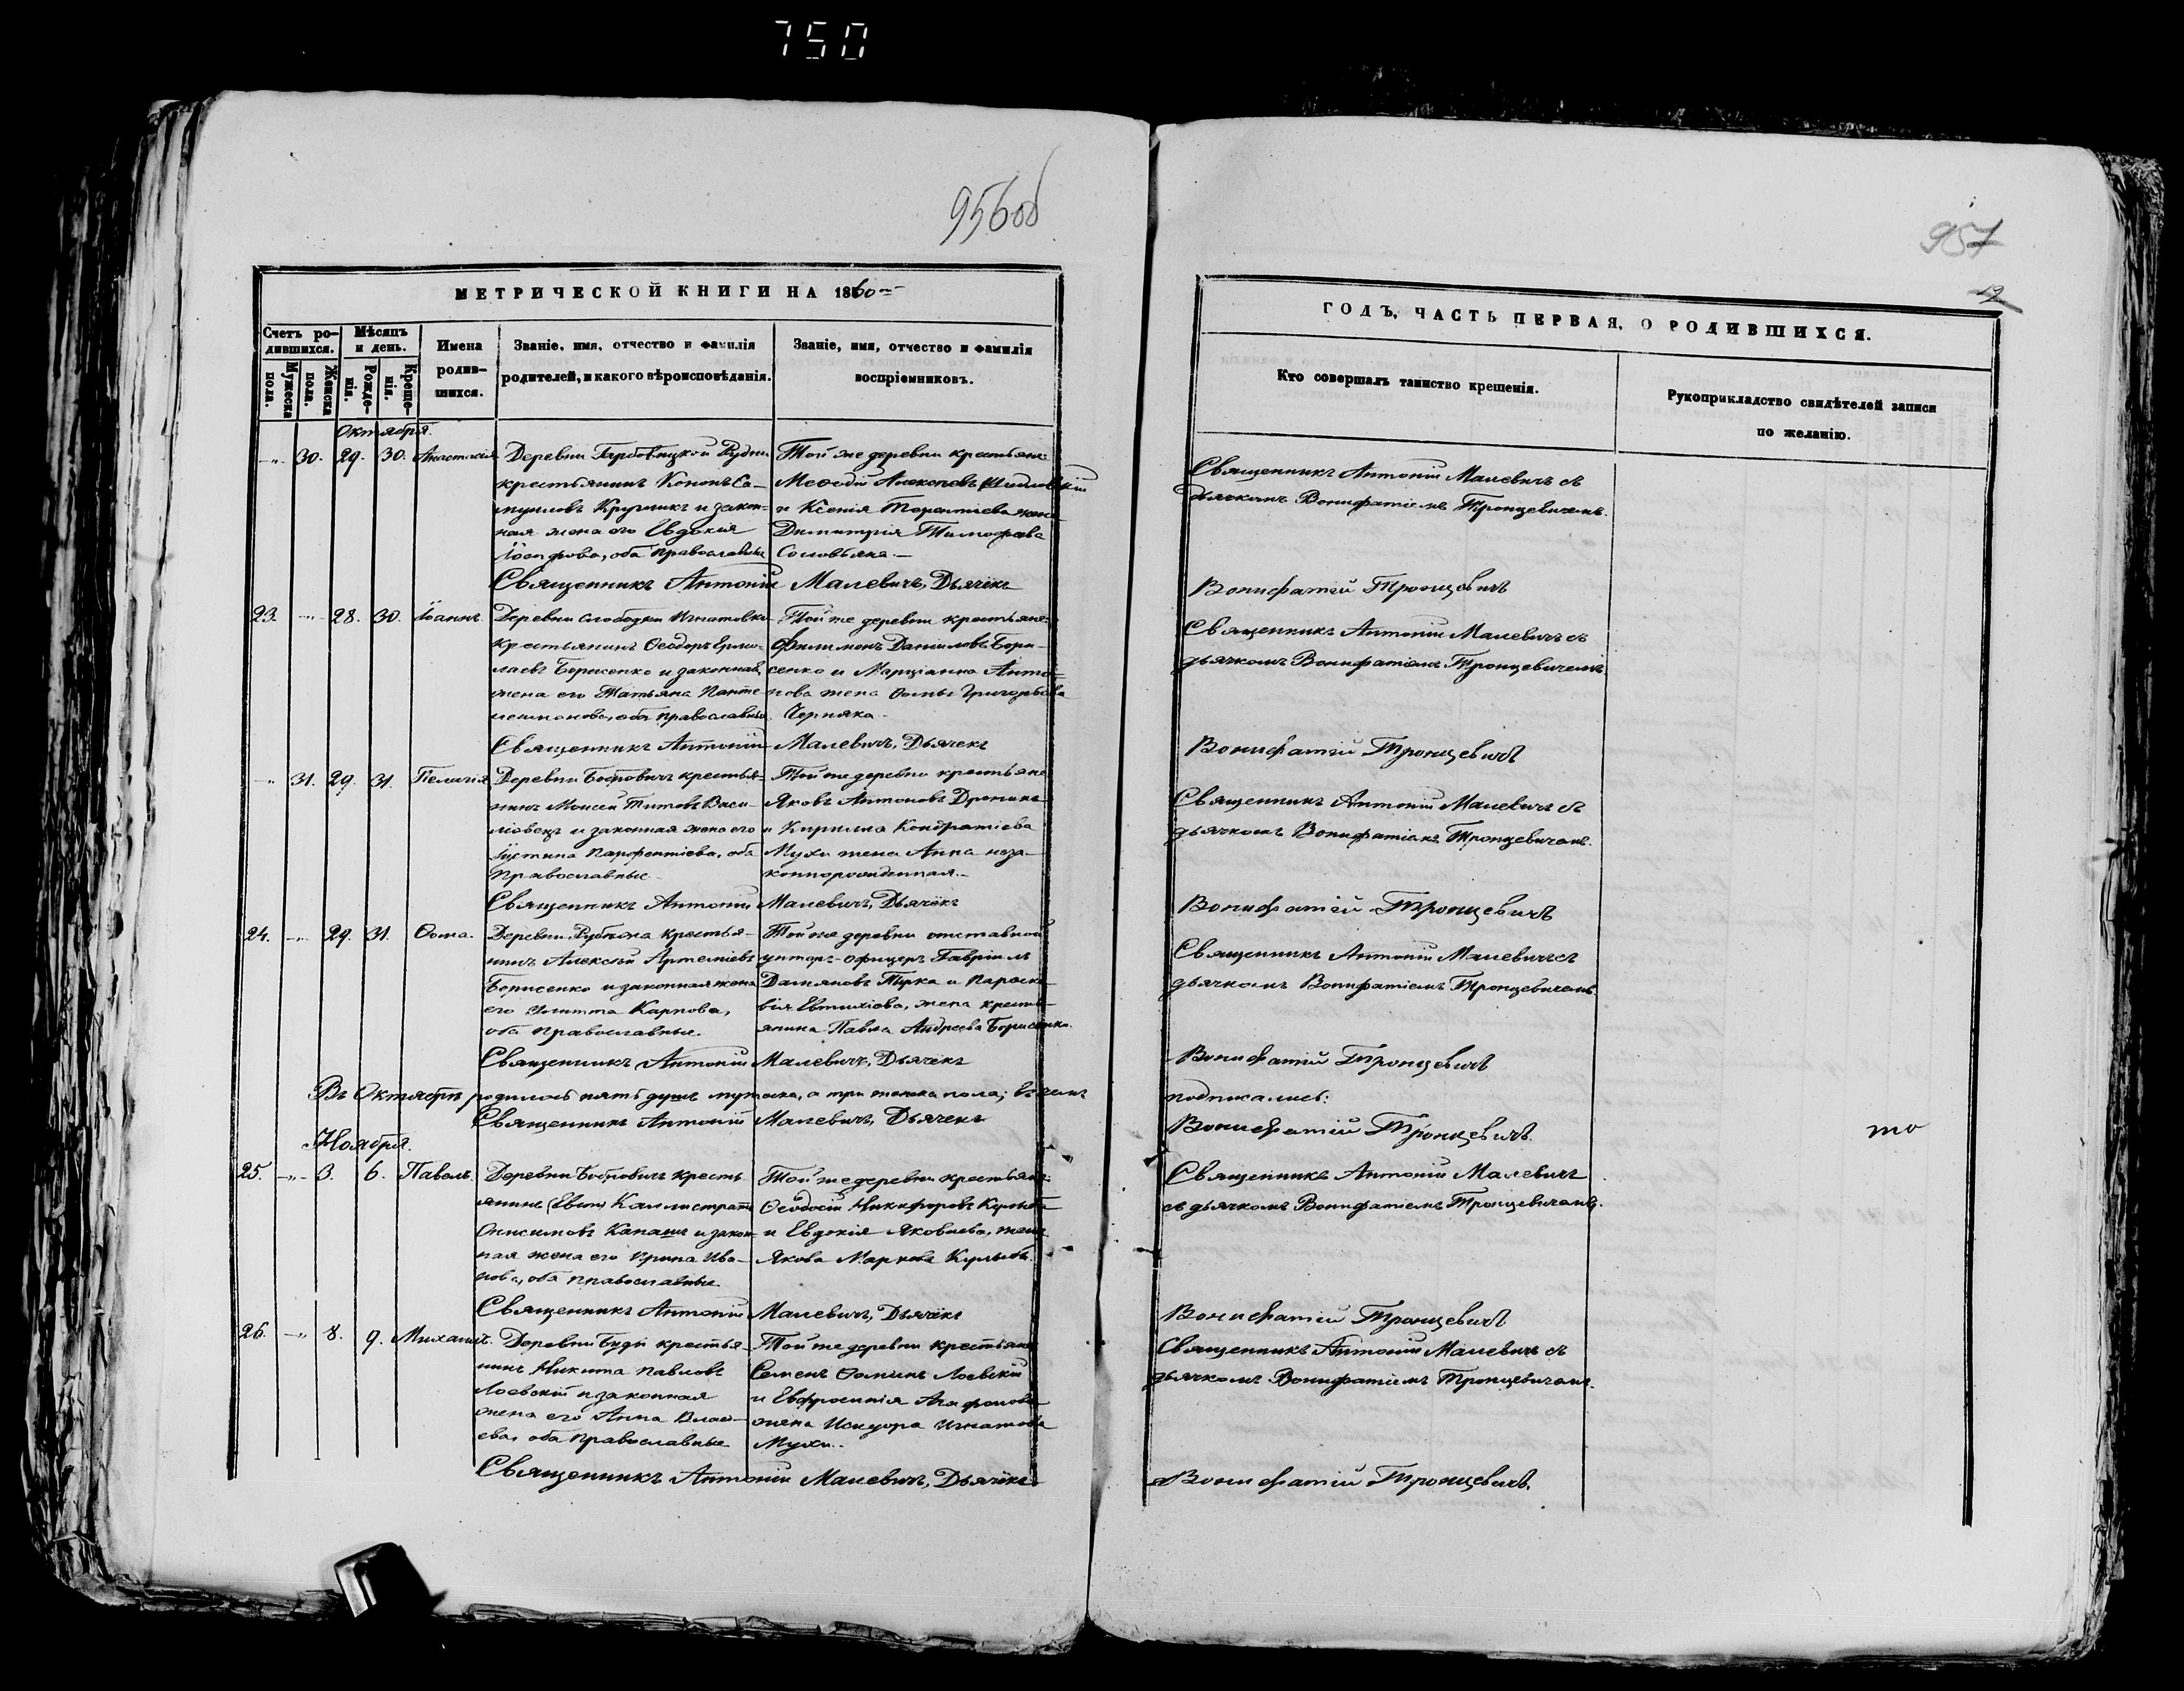 750
956об
957
19
МЕТРИЧЕСКОЙ КНИГИ НА 1860
ГОДЪ, ЧАСТЬ ПЕРВАЯ, О РОДИВШИХСЯ.
Счетъ ро-
дившихся.
Мѣсяцъ
и день.
Имена
родив-
шихся.
Званіе, имя, отчество и фамилія
родителей, и какого вѣроисповѣданія.
Званіе, имя, отчество и фамилія
воспріемниковъ.
Мужеска
пола.
Женска
пола.
Рожде-
нія.
Креще-
нія.
Кто совершалъ таинство крещенія.
Рукоприкладство свидѣтелей записи
по желанію.
Октября.
30. 29. 30. Анастасія
Деревни Рудни
крестьянинъ Кононъ Са-
муиловъ и закон-
ная жена его Евдокія
Іосифова, оба православные
Той же деревни крестьяне
Меѳодій
и Ксенія Терентіева жена
Димитрія Тимофеева
Соловьяна.
Священникъ Антоній Малевичъ съ
дьячкомъ Вонифатіемъ Тронцевичемъ.
Священникъ Антоній Малевичъ, Дьячекъ Вонифатій Тронцевичъ
23. 28. 30. Іоаннъ
Деревни Слободки Игнатовки
крестьянинъ Ѳеодоръ Ермо-
лаевъ Борисенко и законная
жена его Татьяна Панте-
леимонова, оба православные
Той же деревни крестьяне
Филимонъ Даніиловъ Бори-
сенко и Марціанна Анто-
нова жена Ѳомы Григорьева
Черняка.
Священникъ Антоній Малевичъ съ
дьячкомъ Вонифатіемъ Тронцевичемъ
Священникъ Антоній Малевичъ, Дьячекъ Вонифатій Тронцевичъ
31. 29. 31. Пелагія
Деревни Бобровичъ крестья-
нинъ Моисей Титовъ Васи-
ловецъ и законная жена его
Іустина Парфентіева, оба
православные
Той же деревни крестьяне
Яковъ Антоновъ
и Кирилла Кондратіева
Мухи жена Анна неза-
коннорожденная.
Священникъ Антоній Малевичъ съ
дьячкомъ Вонифатіемъ Тронцевичемъ.
Священникъ Антоній Малевичъ, Дьячекъ Вонифатій Тронцевичъ
24. 29. 31. Ѳома.
Деревни крестья-
нинъ Алексѣй Артеміевъ
Борисенко и законная жена
его Карпова,
оба православные.
Той же деревни отставной
унтеръ-офицеръ Гавріилъ
Даміановъ и Параске-
вія Евтихіева, жена кресть-
янина Павла Андреева Борисенка.
Священникъ Антоній Малевичъ съ
дьячкомъ Вонифатіемъ Тронцевичемъ
Священникъ Антоній Малевичъ, Дьячекъ Вонифатій Тронцевичъ
Въ Октябрѣ родилось пять душъ мужеска, а три женска пола; въ чемъ подписались:
Священникъ Антоній Малевичъ, Дьячекъ Вонифатій Тронцевичъ.
то
Ноября.
25. 3. 6. Павелъ.
Деревни Бобровичъ кресть-
янинъ Каллистратъ
Онисимовъ Капашъ и закон-
ная жена его Ирина Ива-
нова, оба православные
Той же деревни крестьяне
Ѳеодосій Никифоровъ
и Евдокія Яковлева, жена
Якова Маркова
Священникъ Антоній Малевичъ
съ дьячкомъ Вонифатіемъ Тронцевичемъ.
Священникъ Антоній Малевичъ, Дьячекъ Вонифатій Тронцевичъ
26. 8. 9. Михаилъ.
Деревни Буды крестья-
нинъ Никита Павловъ
Лоевскій и законная
жена его Анна Влась-
ева, оба православные
Той же деревни крестьяне
Семенъ Ѳоминъ Лоевскій
и Евфросинія Агафонова
жена Исидора Игнатова
Мухи.
Священникъ Антоній Малевичъ съ
дьячкомъ Вонифатіемъ Тронцевичемъ.
Священникъ Антоній Малевичъ, Дьячекъ Вонифатій Тронцевичъ.